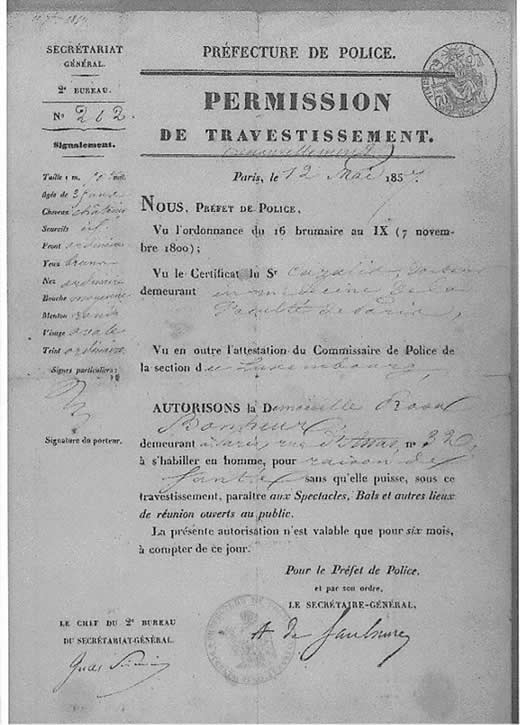 SECRÉTARIAT
GÉNÉRAL.
2e BUREAU.
No 202.
Signalement.
Taille 1 m. mill.
Agée de
Cheveux châtains
Sourcils id
Front ordinaire
Yeux bruns
Nez ordinaire
Bouche moyenne
Menton rond
Visage ovale
Teint ordinaire
Signes particuliers:
Signature du porteur.
PRÉFECTURE DE POLICE.
PERMISSION
DE TRAVESTISSEMENT.
renouvellement
Paris, le 12 Mai 1857
NOUS, PRÉFET DE POLICE,
Vu l'ordonnance du 16 brumaire an IX (7 novem-
bre 1800);
Vu le Certificat du Sr Cazalis, docteur
demeurant en médecine de la
Faculté de Paris,
Vu en outre l'attestation du Commissaire de Police de
la section du Luxembourg,
AUTORISONS la Demoiselle Rosa
Bonheur,
demeurant à Paris, rue d'Assas, no 32,
à s'habiller en homme, pour raison de
santé sans qu'elle puisse, sous ce
travestissement, paraître aux Spectacles, Bals et autres lieux
de réunion ouverts au public.
La présente autorisation n'est valable que pour six mois,
à compter de ce jour.
Pour le Préfet de Police,
et par son ordre,
LE SECRÉTAIRE-GÉNÉRAL,
LE CHEF DU 2e BUREAU
DU SECRÉTARIAT-GÉNÉRAL.